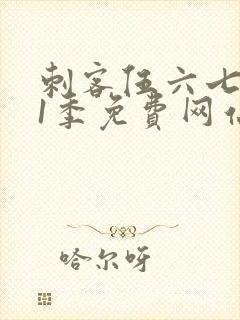 刺客伍六七
1季免費网
哈尔呀